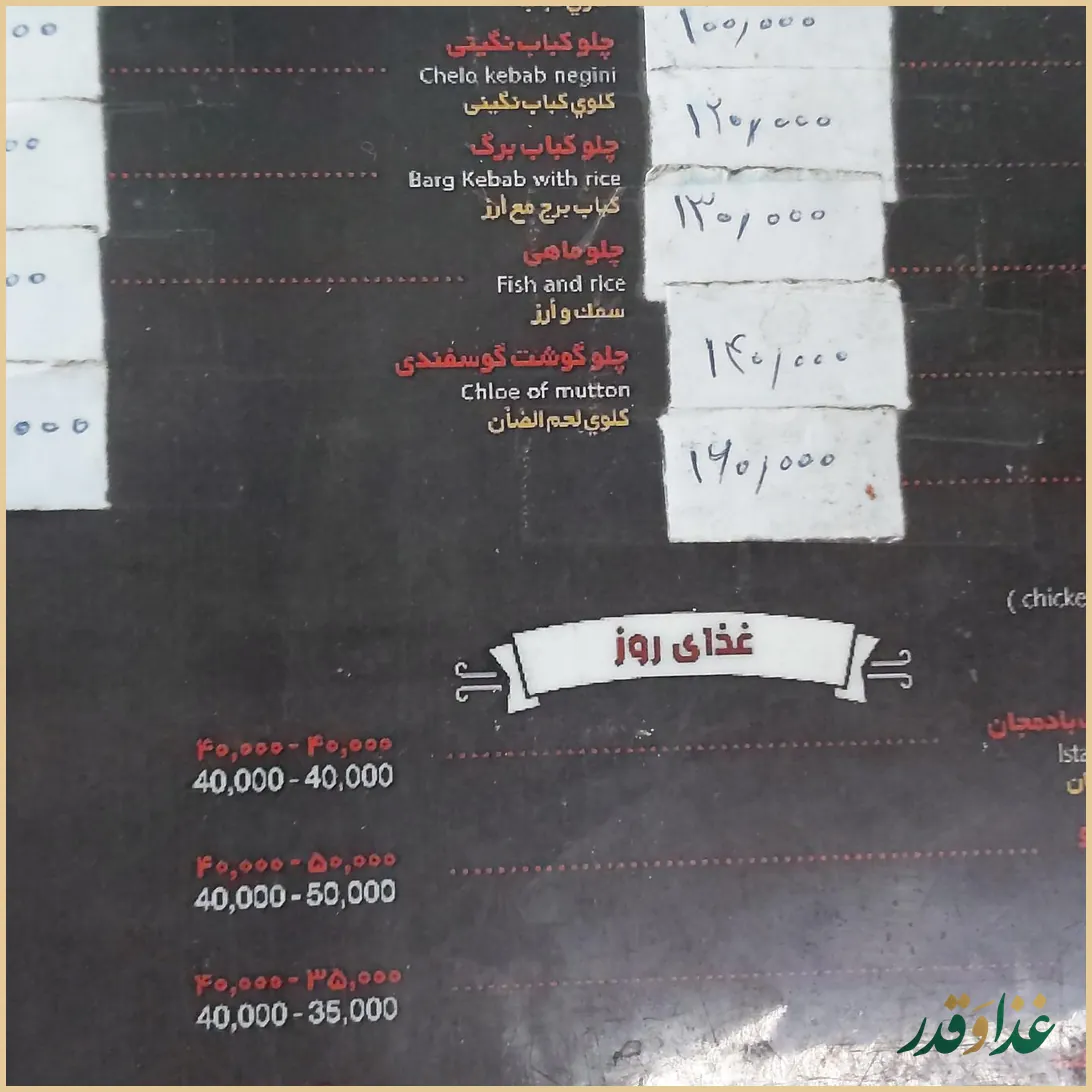 ۱۰۰,۰۰۰
چلو کباب نگینی
Chelo kebab negini
كلوي كباب نگيني
۱۲۰,۰۰۰
چلو کباب برگ
Barg Kebab with rice
كباب برج مع أرز
۱۳۰,۰۰۰
چلو ماهی
Fish and rice
سمك و أرز
۱۴۰,۰۰۰
چلو گوشت گوسفندی
Chloe of mutton
كلوي لحم الضأن
۱۶۰,۰۰۰
( chicke
غذای روز
۴۰,۰۰۰ - ۴۰,۰۰۰
40,000 - 40,000
۴۰,۰۰۰ - ۵۰,۰۰۰
40,000 - 50,000
۴۰,۰۰۰ - ۳۵,۰۰۰
40,000 - 35,000
غذا و قدر